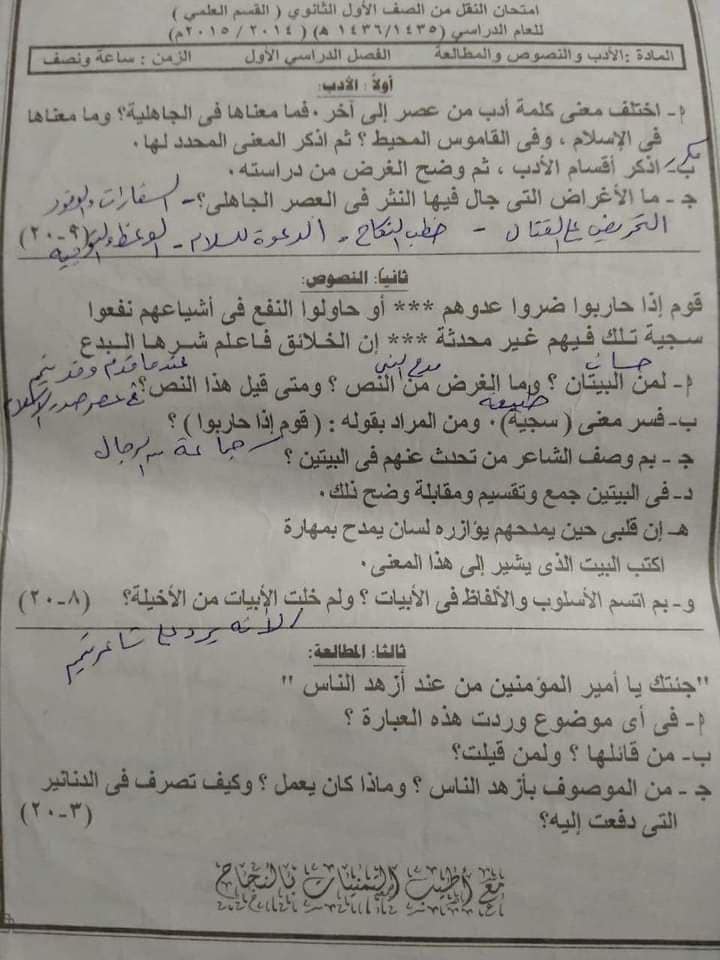 امتحان النقل من الصف الأول الثانوي ( القسم العلمي )
للعام الدراسي (١٤٣٦/١٤٣٥ هـ) ( ٢٠١٤ / ٢٠١٥م)
المادة :الأدب والنصوص والمطالعة الفصل الدراسي الأول الزمن : ساعة ونصف
أولاً: الأدب:
أ- اختلف معنى كلمة أدب من عصر إلى آخر ٠ فما معناها فى الجاهلية؟ وما معناها
فى الإسلام ، وفى القاموس المحيط ؟ ثم اذكر المعنى المحدد لها٠
ب- اذكر أقسام الأدب ، ثم وضح الغرض من دراسته٠
جـ- ما الأغراض التى جال فيها النثر فى العصر الجاهلى؟- السفارات والوفود
التحريض على القتال - خطب النكاح - الدعوة للسلام - الوعظ (٩-٢٠)
ثانياً: النصوص:
قوم إذا حاربوا ضروا عدوهم *** أو حاولوا النفع فى أشياعهم نفعوا
سجية تلك فيهم غير محدثة *** إن الخلائق فاعلم شرها البدع
حسان مدح النبى عندما قدم وفد تميم
أ- لمن البيتان ؟ وما الغرض من النص ؟ ومتى قيل هذا النص؟ فى عصر صدر الإسلام
طبيعة
ب- فسر معنى ( سجية)٠ ومن المراد بقوله : ( قوم إذا حاربوا ) ؟
جماعة من الرجال
جـ - بم وصف الشاعر من تحدث عنهم فى البيتين ؟
د- فى البيتين جمع وتقسيم ومقابلة وضح ذلك٠
هـ- إن قلبى حين يمدحهم يؤازره لسان يمدح بمهارة
اكتب البيت الذى يشير إلى هذا المعنى٠
و- بم اتسم الأسلوب والألفاظ فى الأبيات ؟ ولم خلت الأبيات من الأخيلة؟ (٨-٢٠)
لأنه يرد على شاعر تميم
ثالثا: المطالعة:
"جئتك يا أمير المؤمنين من عند أزهد الناس "
أ- فى أى موضوع وردت هذه العبارة ؟
ب- من قائلها ؟ ولمن قيلت؟
جـ - من الموصوف بأزهد الناس ؟ وماذا كان يعمل ؟ وكيف تصرف فى الدنانير
التى دفعت إليه؟ (٣-٢٠)
مع أطيب التمنيات بالنجاح